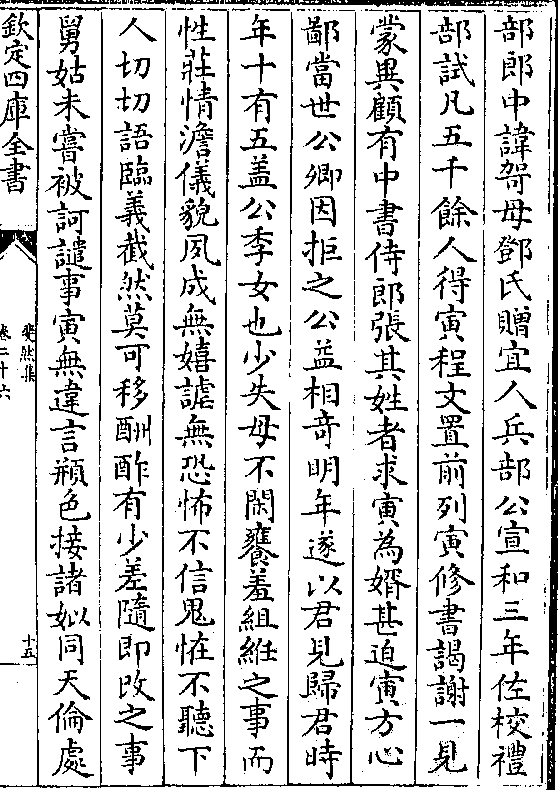 部郎中諱㢸母鄧氏贈宜人兵部公宣和三年佐校禮
部試凡五千餘人得寅程文置前列寅修書謁謝一見
蒙異顧有中書侍郎張其姓者求寅為婿甚迫寅方心
鄙當世公卿因拒之公益相竒明年遂以君見歸君時
年十有五盖公季女也少失母不閑饔羞組紝之事而
性莊情澹儀貌夙成無嬉謔無恐怖不信鬼怪不聽下
人切切語臨義截然莫可移酬酢有少差隨即改之事
舅姑未嘗被訶譴事寅無違言頩色接諸姒同天倫處
欽定四庫全書
斐然集
卷二十六
十五